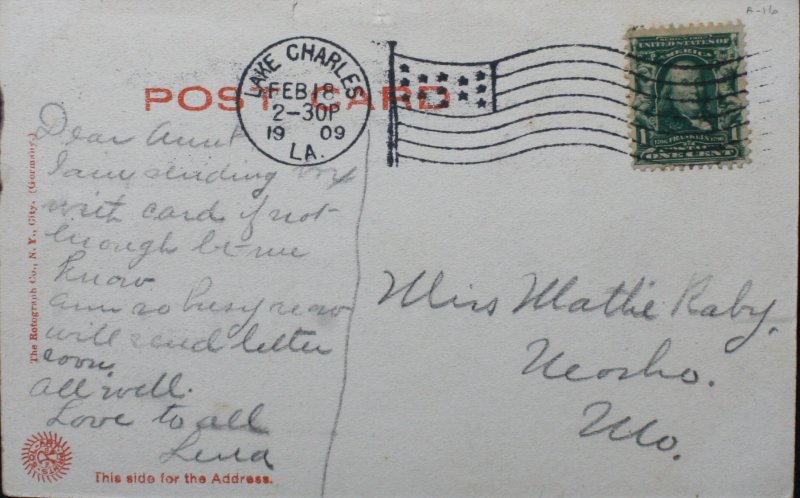 A-16
LAKE CHARLES
FEB 18
2-30P
1909
LA.
POST CARD
SERIES 1902
UNITED STATES OF AMERICA
1 1
FRANKLIN
ONE CENT
Dear Aunt
I am sending my
with card if not
enough let me
know
am so busy now
will send letter
soon.
all well.
Love to all
Lena
Miss Mattie Raby.
Neosho.
Mo.
The Rotograph Co., N. Y., City. (Germany.)
SOL-ART PRINTS
This side for the Address.